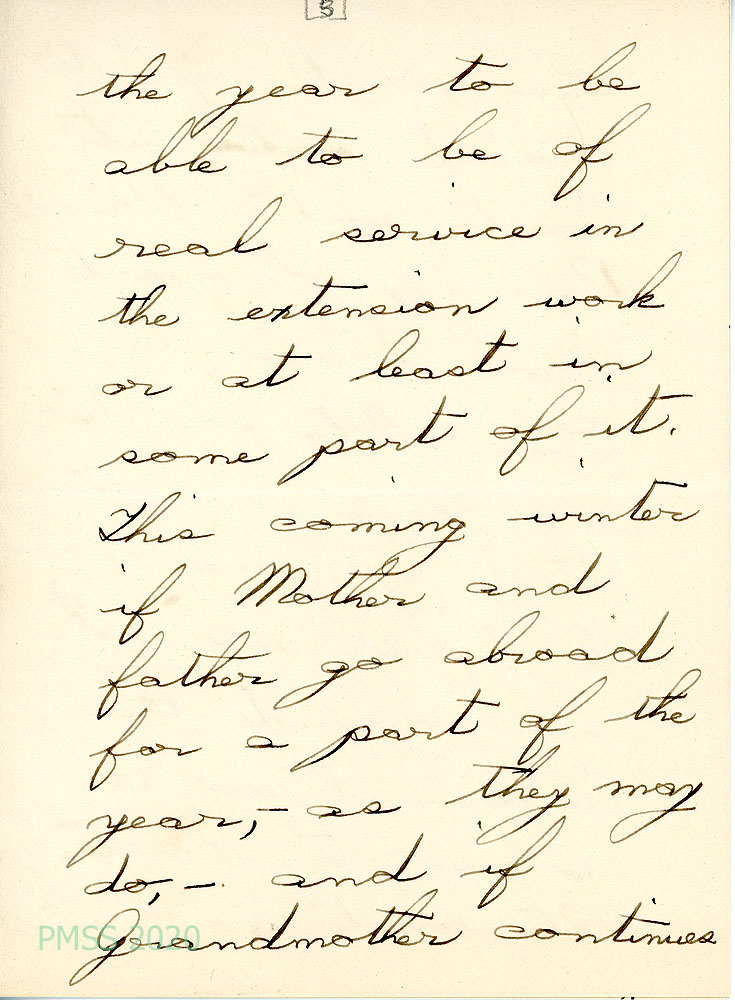 3
the year to be
able to be of
real service in
the extension work
or at least in
some part of it.
This coming winter
if Mother and
father go abroad
for a part of the
year,- as they may
do,- and if
Grandmother continues
PMSS 2020